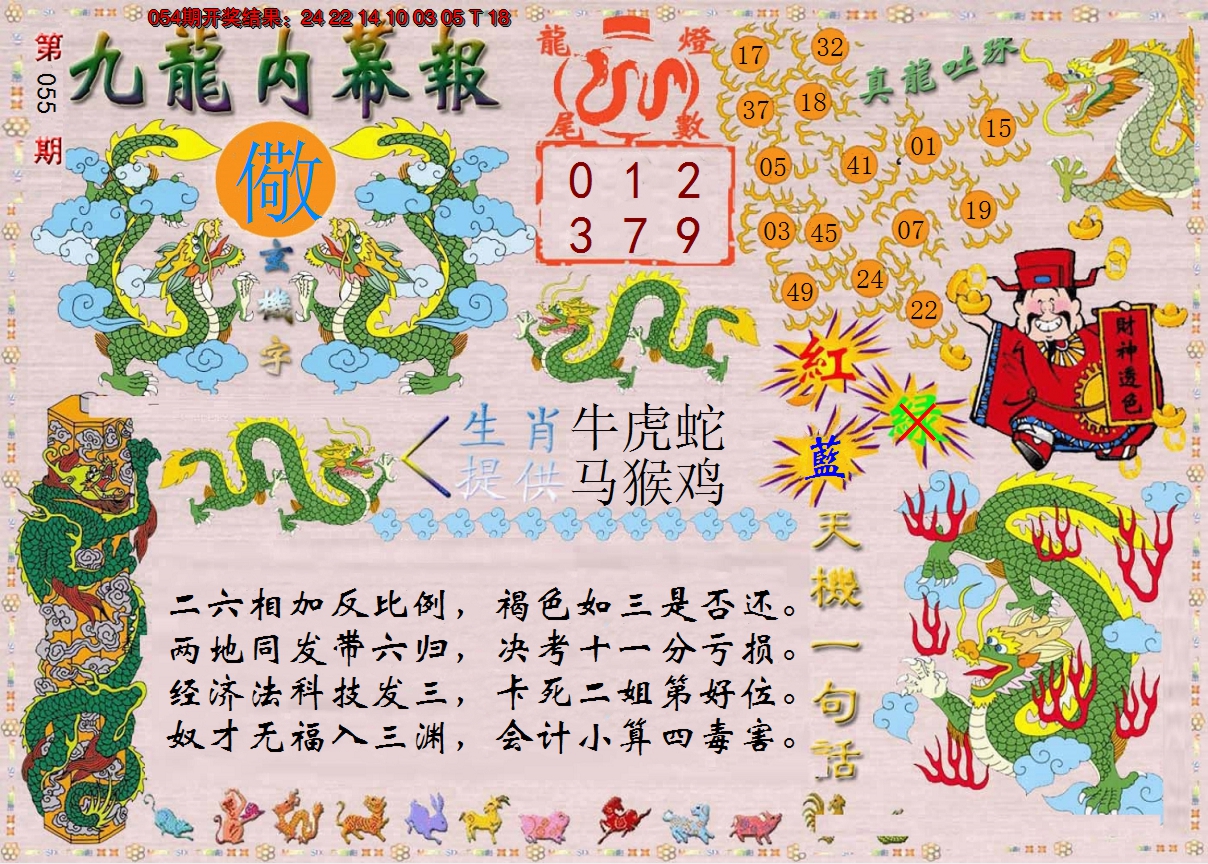 054期开奖结果：24 22 14 10 03 05 T 18
第
055
期
九龍内幕報
儆
玄
機
字
龍 燈
尾 數
0 1 2
3 7 9
真龍吐珠
17 32
37 18
05 41 01 15
03 45 07 19
49 24 22
財神透色
紅
绿
藍
生肖 牛虎蛇
提供 马猴鸡
天機一句話
二六相加反比例，褐色如三是否还。
两地同发带六归，决考十一分亏损。
经济法科技发三，卡死二姐第好位。
奴才无福入三渊，会计小算四毒害。